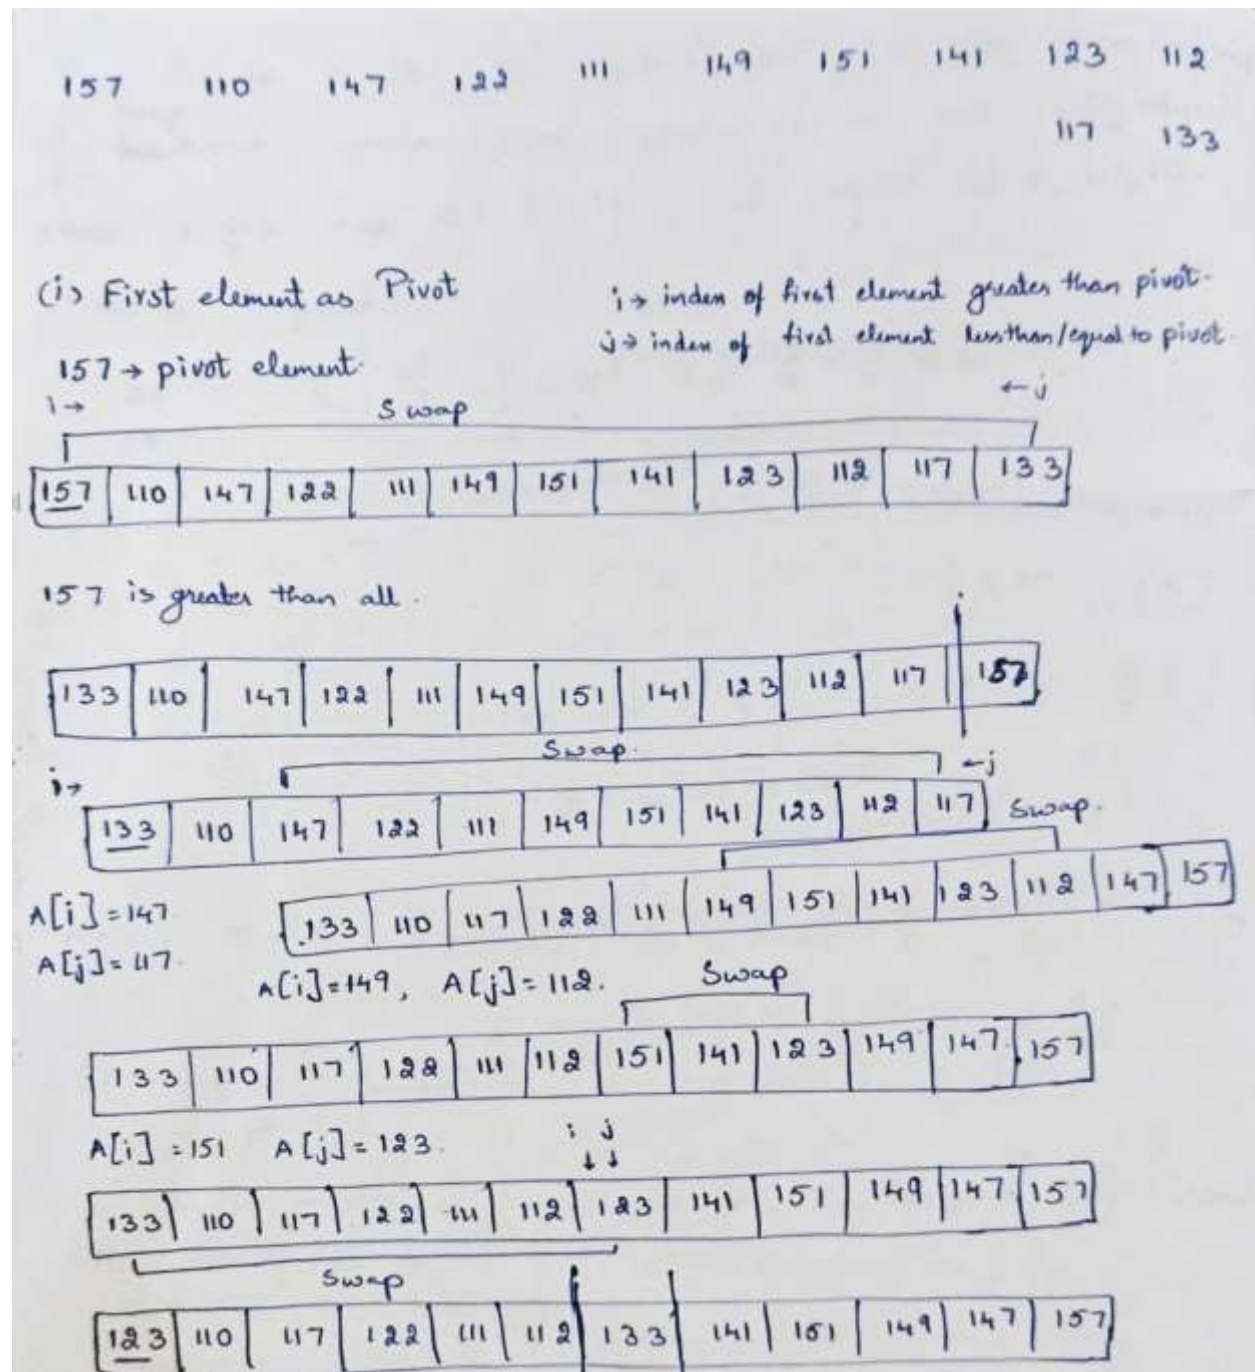 157 110 147 122 111 149 151 141 123 112
117 133
(i) First element as Pivot
i → index of first element greater than pivot.
j → index of first element lessthan/equal to pivot.
157 → pivot element.
i → Swap ← j
157 110 147 122 111 149 151 141 123 112 117 133
157 is greater than all.
133 110 147 122 111 149 151 141 123 112 117 157
Swap.
i → ← j
133 110 147 122 111 149 151 141 123 112 117
Swap.
A[i] = 147
133 110 117 122 111 149 151 141 123 112 147 157
A[j] = 117.
A[i] = 149, A[j] = 112.
Swap
133 110 117 122 111 112 151 141 123 149 147 157
A[i] = 151 A[j] = 123.
i j
↓ ↓
133 110 117 122 111 112 123 141 151 149 147 157
Swap
123 110 117 122 111 112 133 141 151 149 147 157